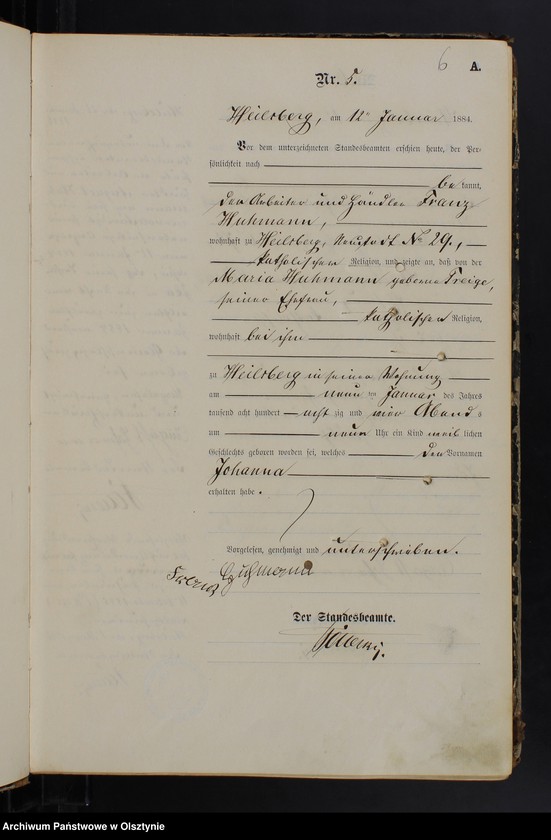 6 A.
Nr. 5.
Heilsberg, am 12ten Januar 1884.
Vor dem unterzeichneten Standesbeamten erschien heute, der Per-
sönlichkeit nach
be kannt,
der Arbeiter und Händler Franz
Huhmann,
wohnhaft zu Heilsberg, Neustadt No 29.,
katholischen Religion, und zeigte an, daß von der
Maria Huhmann geborne Freige,
seiner Ehefrau,
katholischen Religion,
wohnhaft bei ihm
zu Heilsberg in seiner Wohnung
am neun ten Januar des Jahres
tausend acht hundert acht zig und vier Abend s
um neun Uhr ein Kind weib lichen
Geschlechts geboren worden sei, welches den Vornamen
Johanna
erhalten habe.
Vorgelesen, genehmigt und unterschrieben.
Franz Huhmann
Der Standesbeamte.
Archiwum Państwowe w Olsztynie